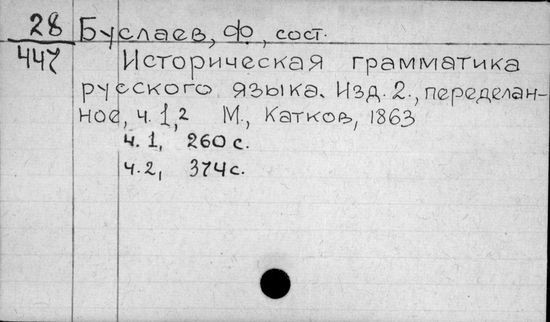 28
447
Буслаев, Ф., сост.
Историческая грамматика
русского языка. Изд. 2., переделан-
ное, ч. 1,2 М., Катков, 1863
ч. 1, 260 с.
ч. 2, 374 с.